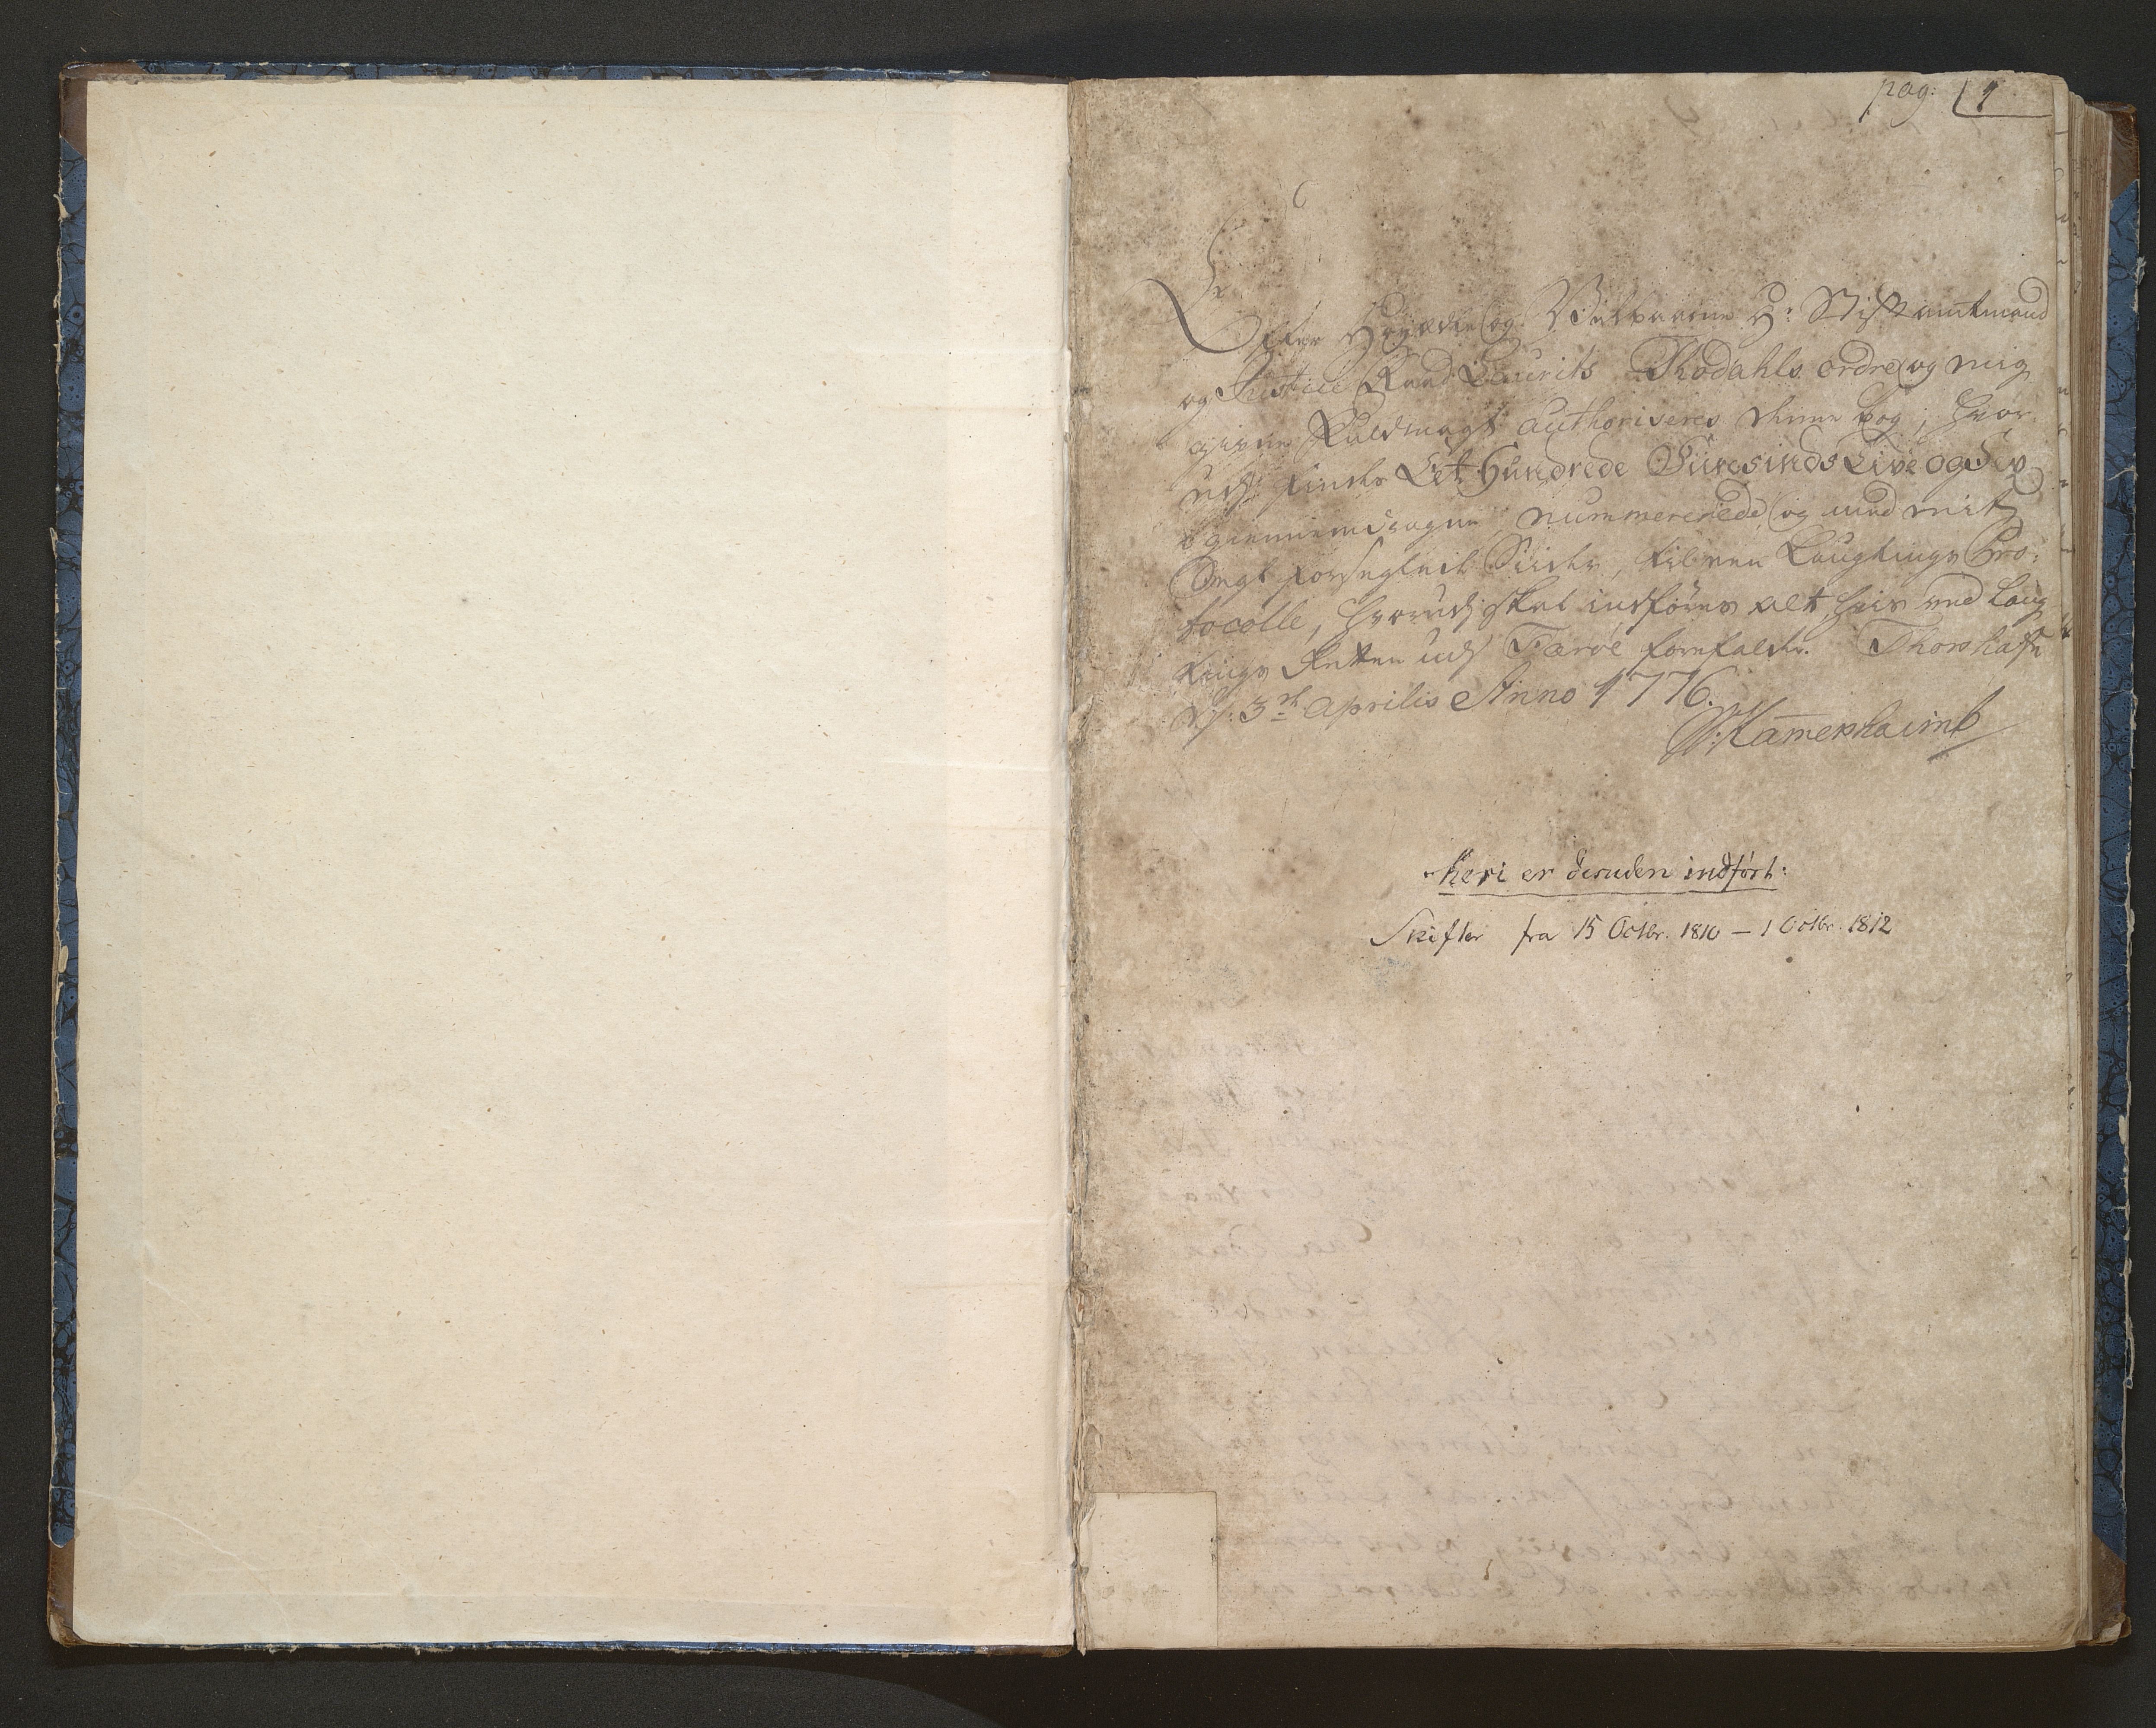 pag: 1
Efter Høyædle og Velbaarne Hr Stiftamtmand
og Justice Raad Laurits Thodahls ordre og mig
givne Fuldmagt authoriseres denne bog, hvor
udj findes Eet Hundrede Tiiresinds Tive og Sex
igiennemdragne, nummererede og med mit
Segl forseglede Siider, til een Laugtings Pro:
tocolle, hvorudj skal indføres alt hvis ved Laug
tings Retten udj Færøe forefalder. Thorshafn
dj: 3de Aprilis Anno 1776.
Hammershaimb
heri er desuden indført:
Skifter fra 15 Octbr. 1810 — 1 Octbr. 1812